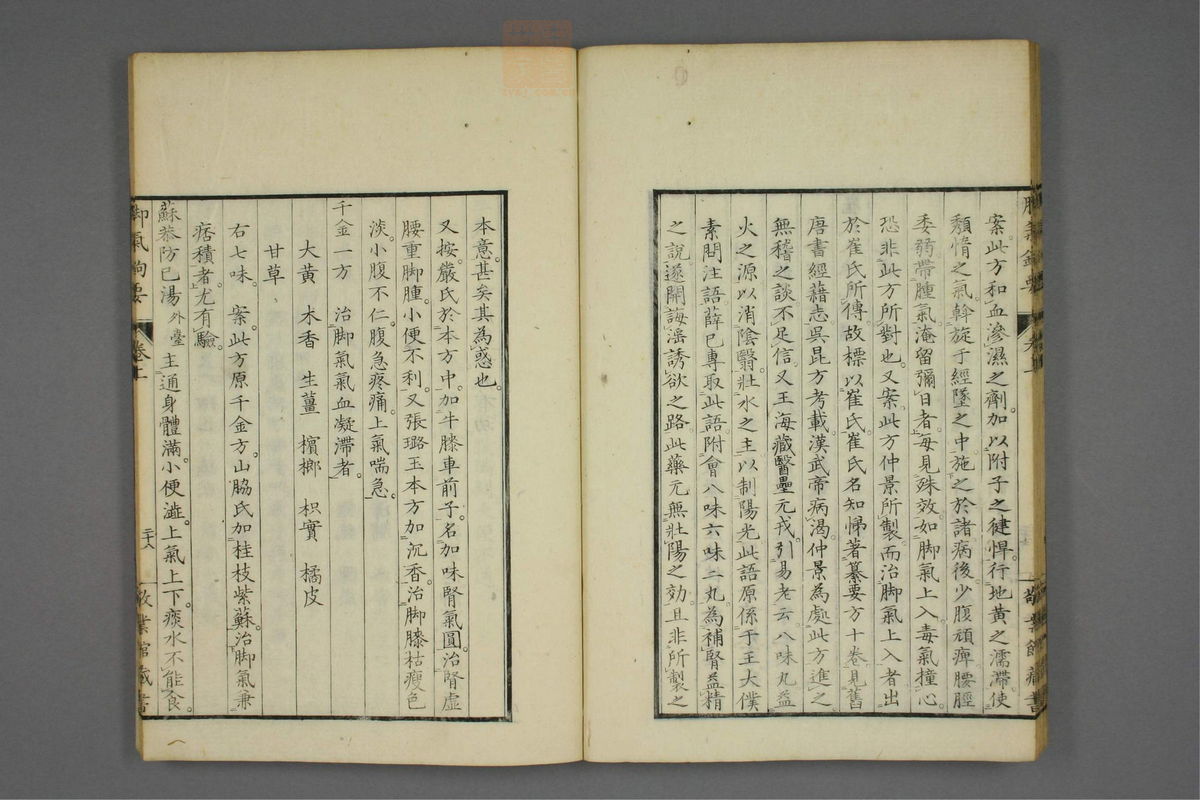 案此方和血滲濕之劑加以附子之健悍行地黃之濡滯使
頽惰之氣斡旋于經墜之中施之於諸病後少腹頑痺腰脛
委弱帶腫氣淹留彌日者每見殊效如脚氣上入毒氣撞心
恐非此方所對也又案此方仲景所製而治脚氣上入者出
於崔氏所傳故標以崔氏崔氏名知悌著纂要方十卷見舊
唐書經籍志吳昆方考載漢武帝病渴仲景為處此方進之
無稽之談不足信又王海藏醫壘元戎引易老云八味丸益
火之源以消陰翳壯水之主以制陽光此語原係于王大僕
素問注語薛已專取此語附會八味六味二丸為補腎益精
之說遂開誨淫誘欲之路此藥元無壯陽之効且非所製之
本意甚矣其為惑也
又按嚴氏於本方中加牛膝車前子名加味腎氣圓治腎虛
腰重脚腫小便不利又張璐玉本方加沉香治脚膝枯瘦色
淡小腹不仁腹急疼痛上氣喘急
千金一方　治脚氣氣血凝滯者
大黃　木香　生薑　檳榔　枳實　橘皮
甘草
右七味　案此方原千金方山脇氏加桂枝紫蘇治脚氣兼
痞積者尤有驗
蘇恭防已湯外臺　主通身體滿小便澁上氣上下痰水不能食
脚氣鉤要
卷上
二十八
敬業館藏書